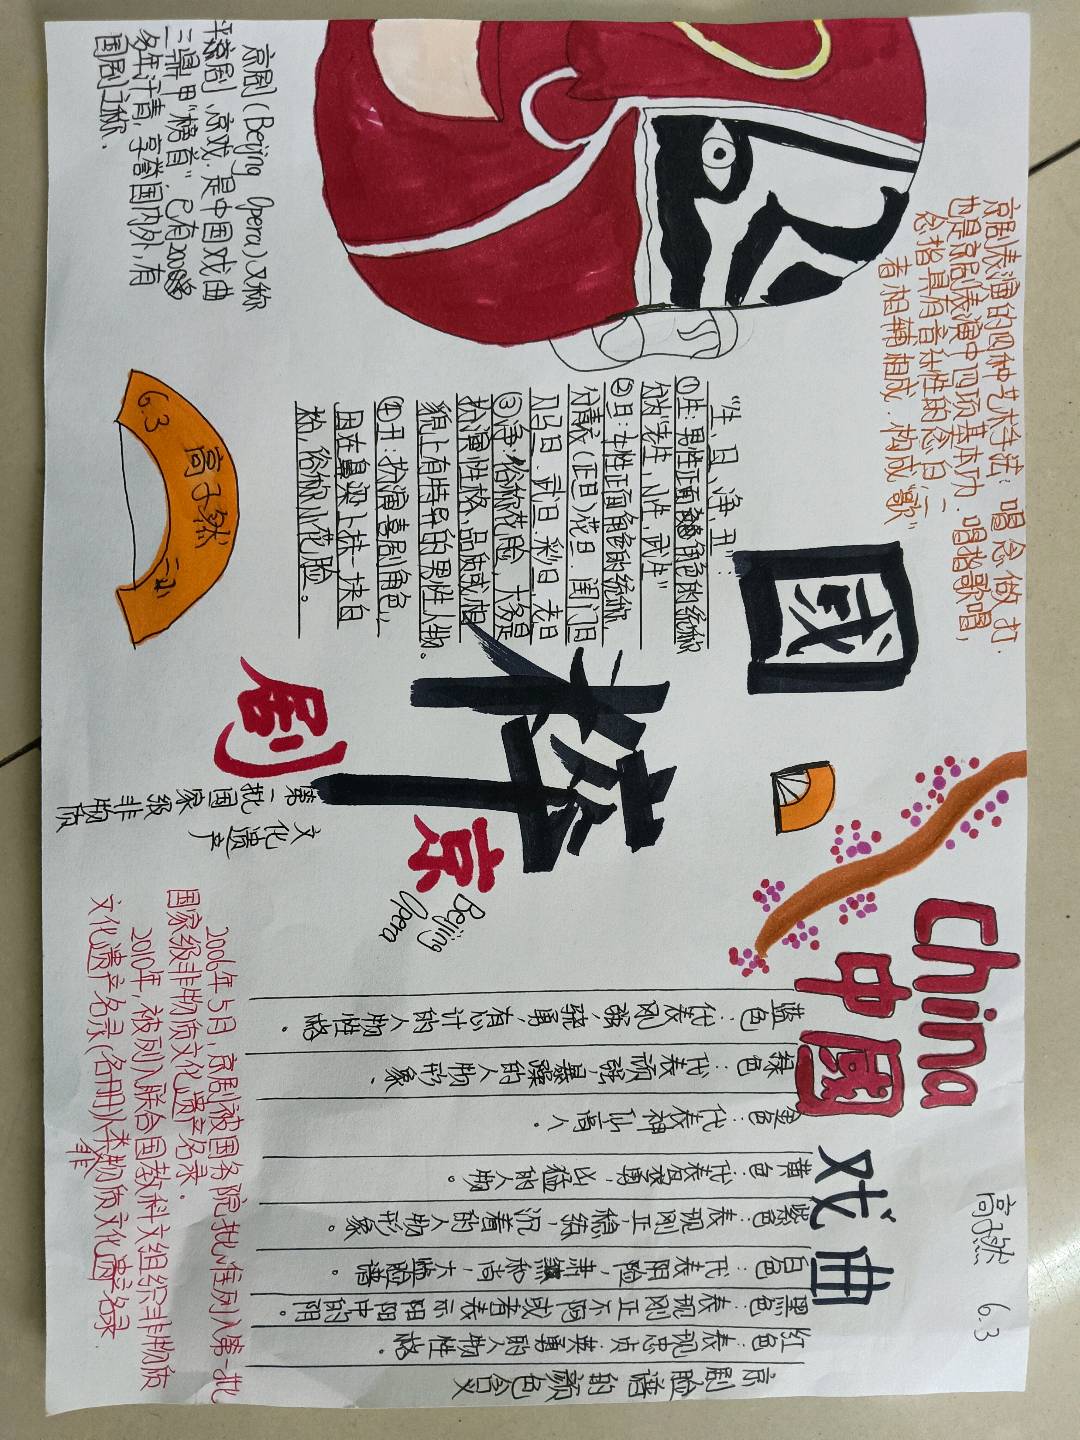 京剧(Beijing Opera)又称
平京剧、京戏.是中国戏曲
三鼎甲"榜首".已有200
多年,享誉国内外,有
国剧之称.
京剧表演的四种艺术手法:唱念做打.
也是京剧表演中四项基本功.唱指歌唱,
念指具有音乐性的念白,二
者相辅相成.构成"歌"
"生、旦、净、丑":
①生:男性正面角色的统称
分"老生,小生,武生"
②旦:女性正面角色的统称,
分青衣(正旦)花旦.闺门旦
刀马旦.武旦.彩旦.老旦
③净:俗称花脸,大多是
扮演性格,品质或相
貌上有特异的男性人物。
④丑:扮演喜剧角色,
因在鼻梁上抹一块白
粉,俗称小花脸。
6.3
高子然
国
粹
京
剧
京
Beijing
Opera
第一批国家级非物质
文化遗产
2006年5月,京剧被国务院批准列入第一批
国家级非物质文化遗产名录.
2010年,被列入联合国教科文组织非物质
文化遗产名录(名册)人类
非
物质文化遗产名录
China
中國
戏曲
高子然 6.3
京剧脸谱的颜色含义
红色:表现忠贞,英勇的人物性格
黑色:表现刚正不阿或者表示阳中的阴。
白色:代表阴险,
紫色:表现刚正,稳练,沉着的人物形象
黄色:代表骁勇,凶猛的人物.
代表神仙高人.
绿色:代表顽强,暴躁的人物形象、
蓝色:代表刚强,骁勇,有心计的人物性格。